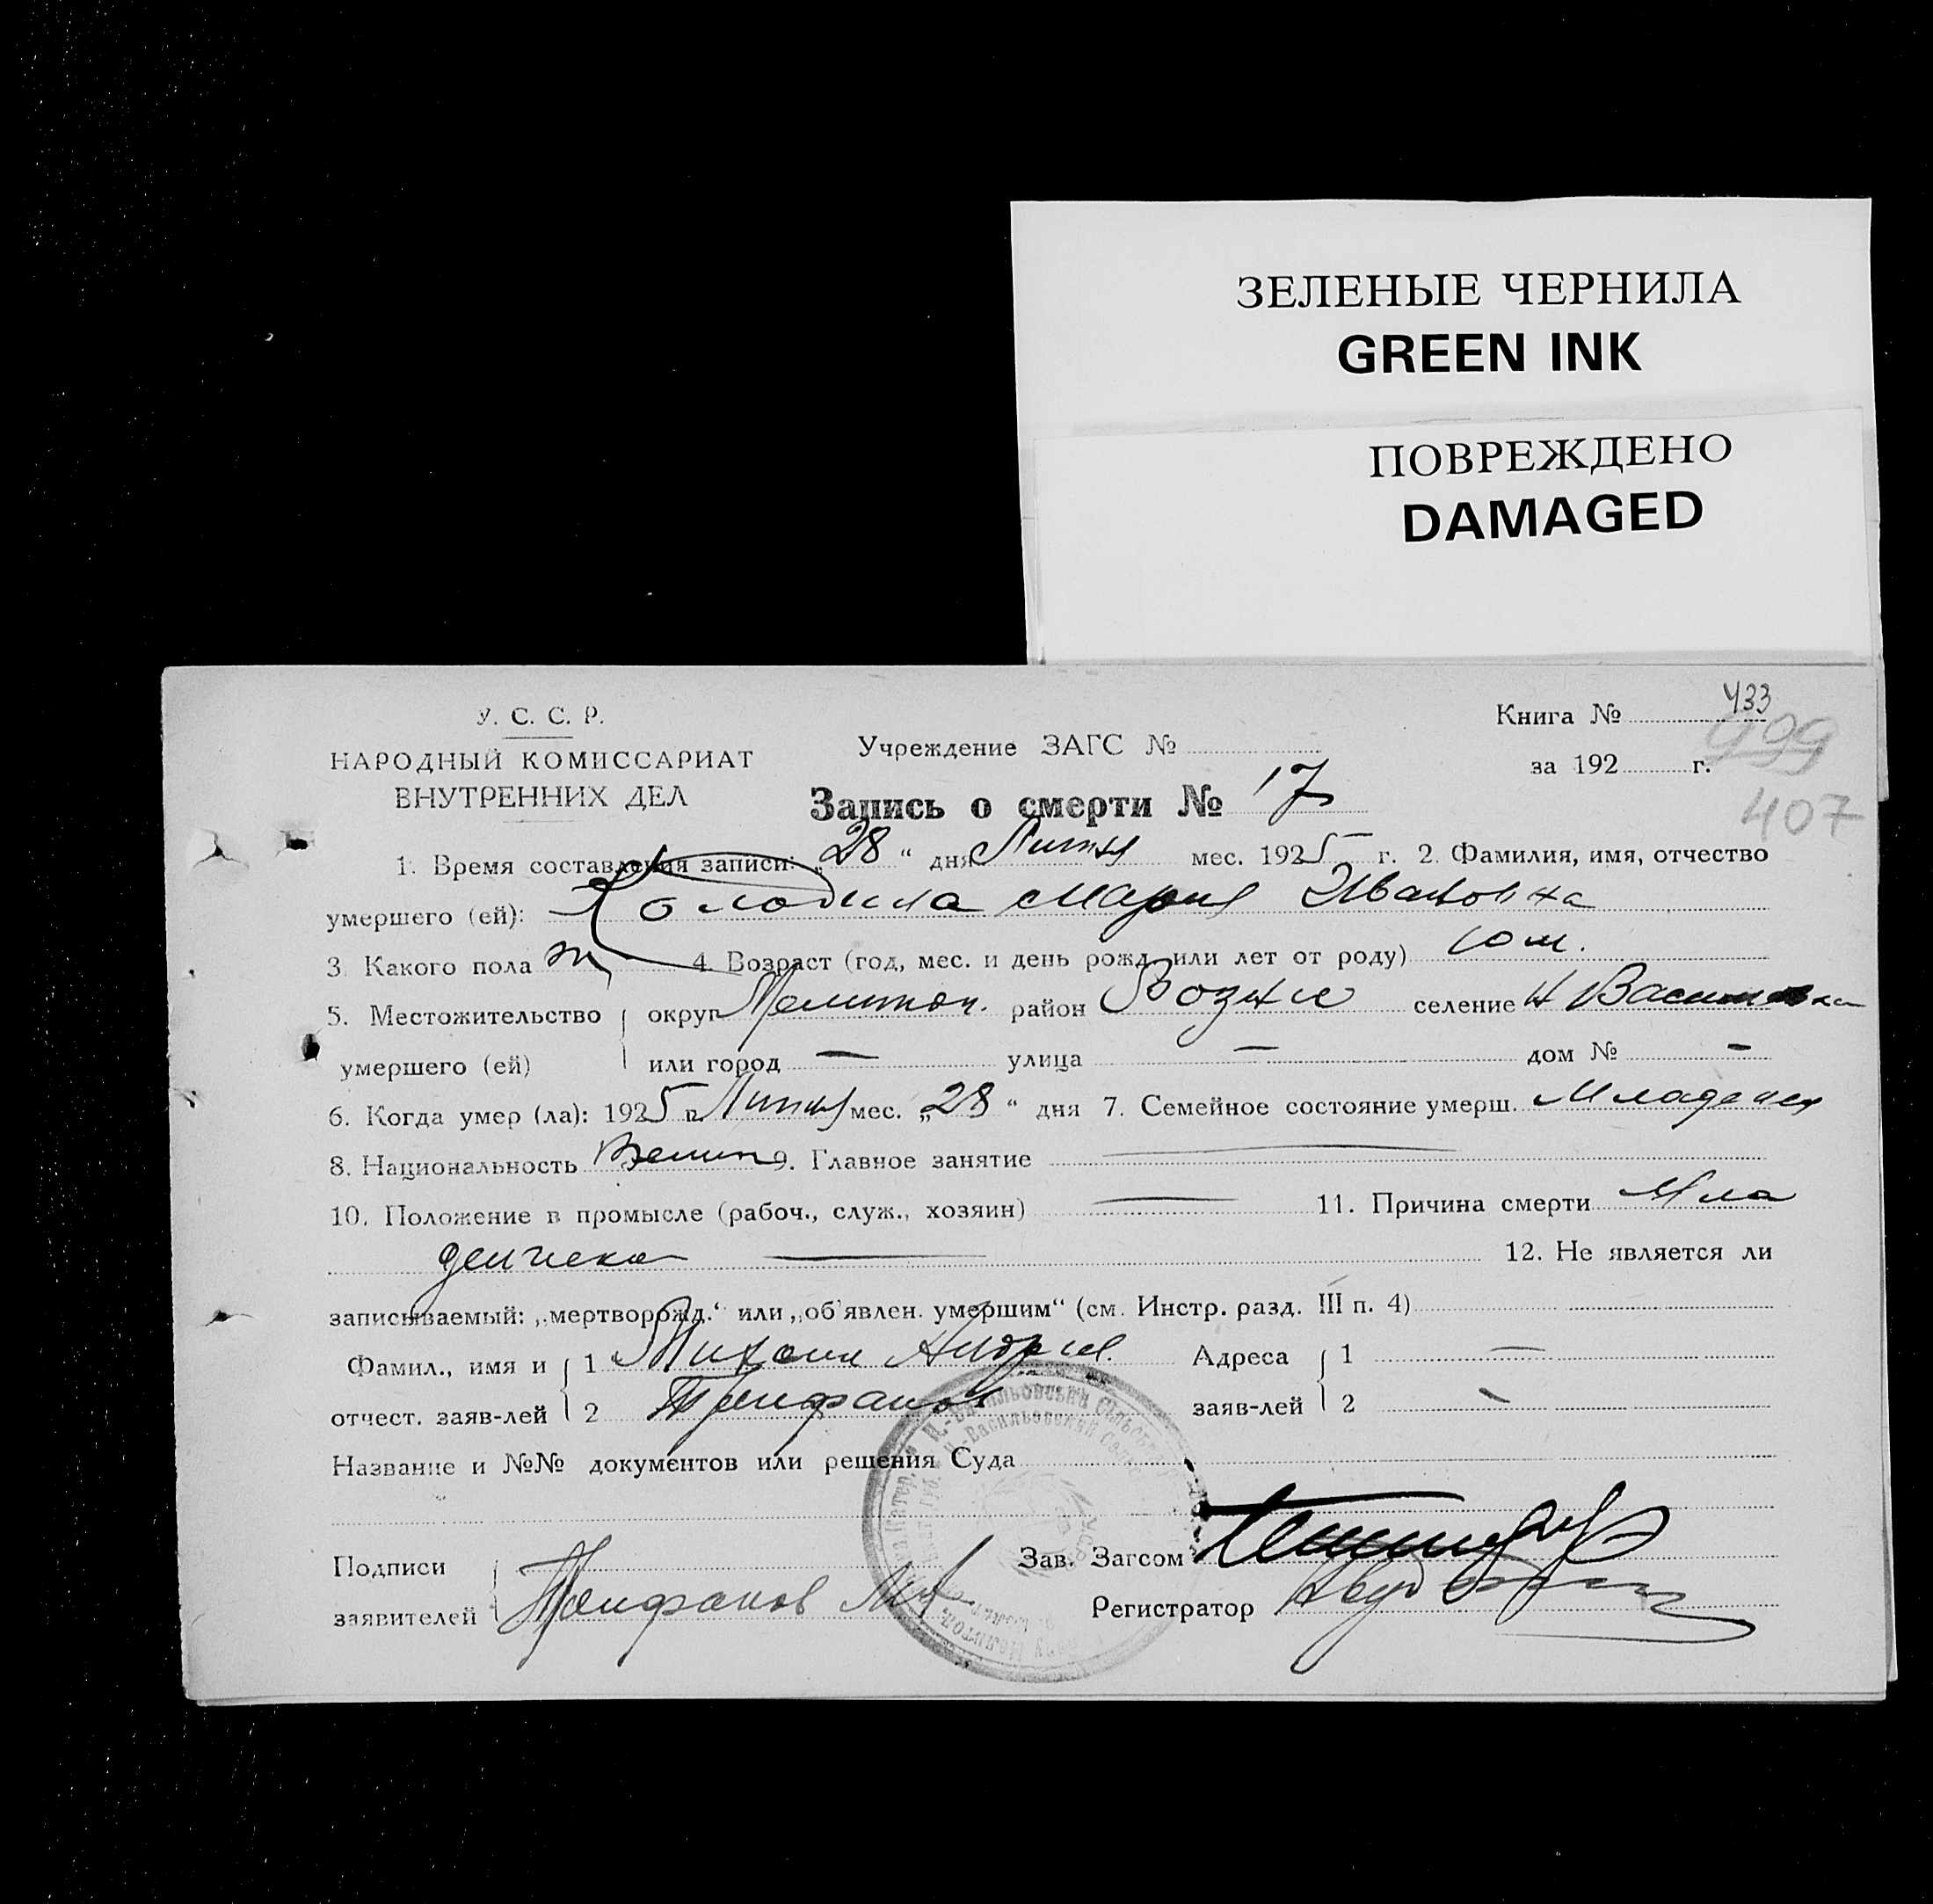 ЗЕЛЕНЫЕ ЧЕРНИЛА
GREEN INK
ПОВРЕЖДЕНО
DAMAGED
У. С. С. Р.
НАРОДНЫЙ КОМИССАРИАТ
ВНУТРЕННИХ ДЕЛ
Учреждение ЗАГС №
Книга № 433
999
за 192 г.
407
Запись о смерти № 17
1. Время составления записи: „28“ дня мес. 1925 г. 2. Фамилия, имя, отчество
умершего (ей): Мария Ивановна
3. Какого пола ж 4. Возраст (год, мес. и день рожд. или лет от роду) 10 м.
5. Местожительство округ Мелитоп. район селение Н Васильевка
умершего (ей) или город — улица — дом № -
6. Когда умер (ла): 1925 г. мес. „28“ дня 7. Семейное состояние умерш. Младенец
8. Национальность 9. Главное занятие
10. Положение в промысле (рабоч., служ., хозяин) 11. Причина смерти Мла
денческа 12. Не является ли
записываемый: „мертворожд.“ или „об'явлен. умершим“ (см. Инстр. разд. III п. 4)
Фамил., имя и 1 Адреса 1 —
отчест. заяв-лей 2 Трифанов заяв-лей 2 -
Название и №№ документов или решения Суда
Подписи Зав. Загсом
заявителей Трифанов Регистратор